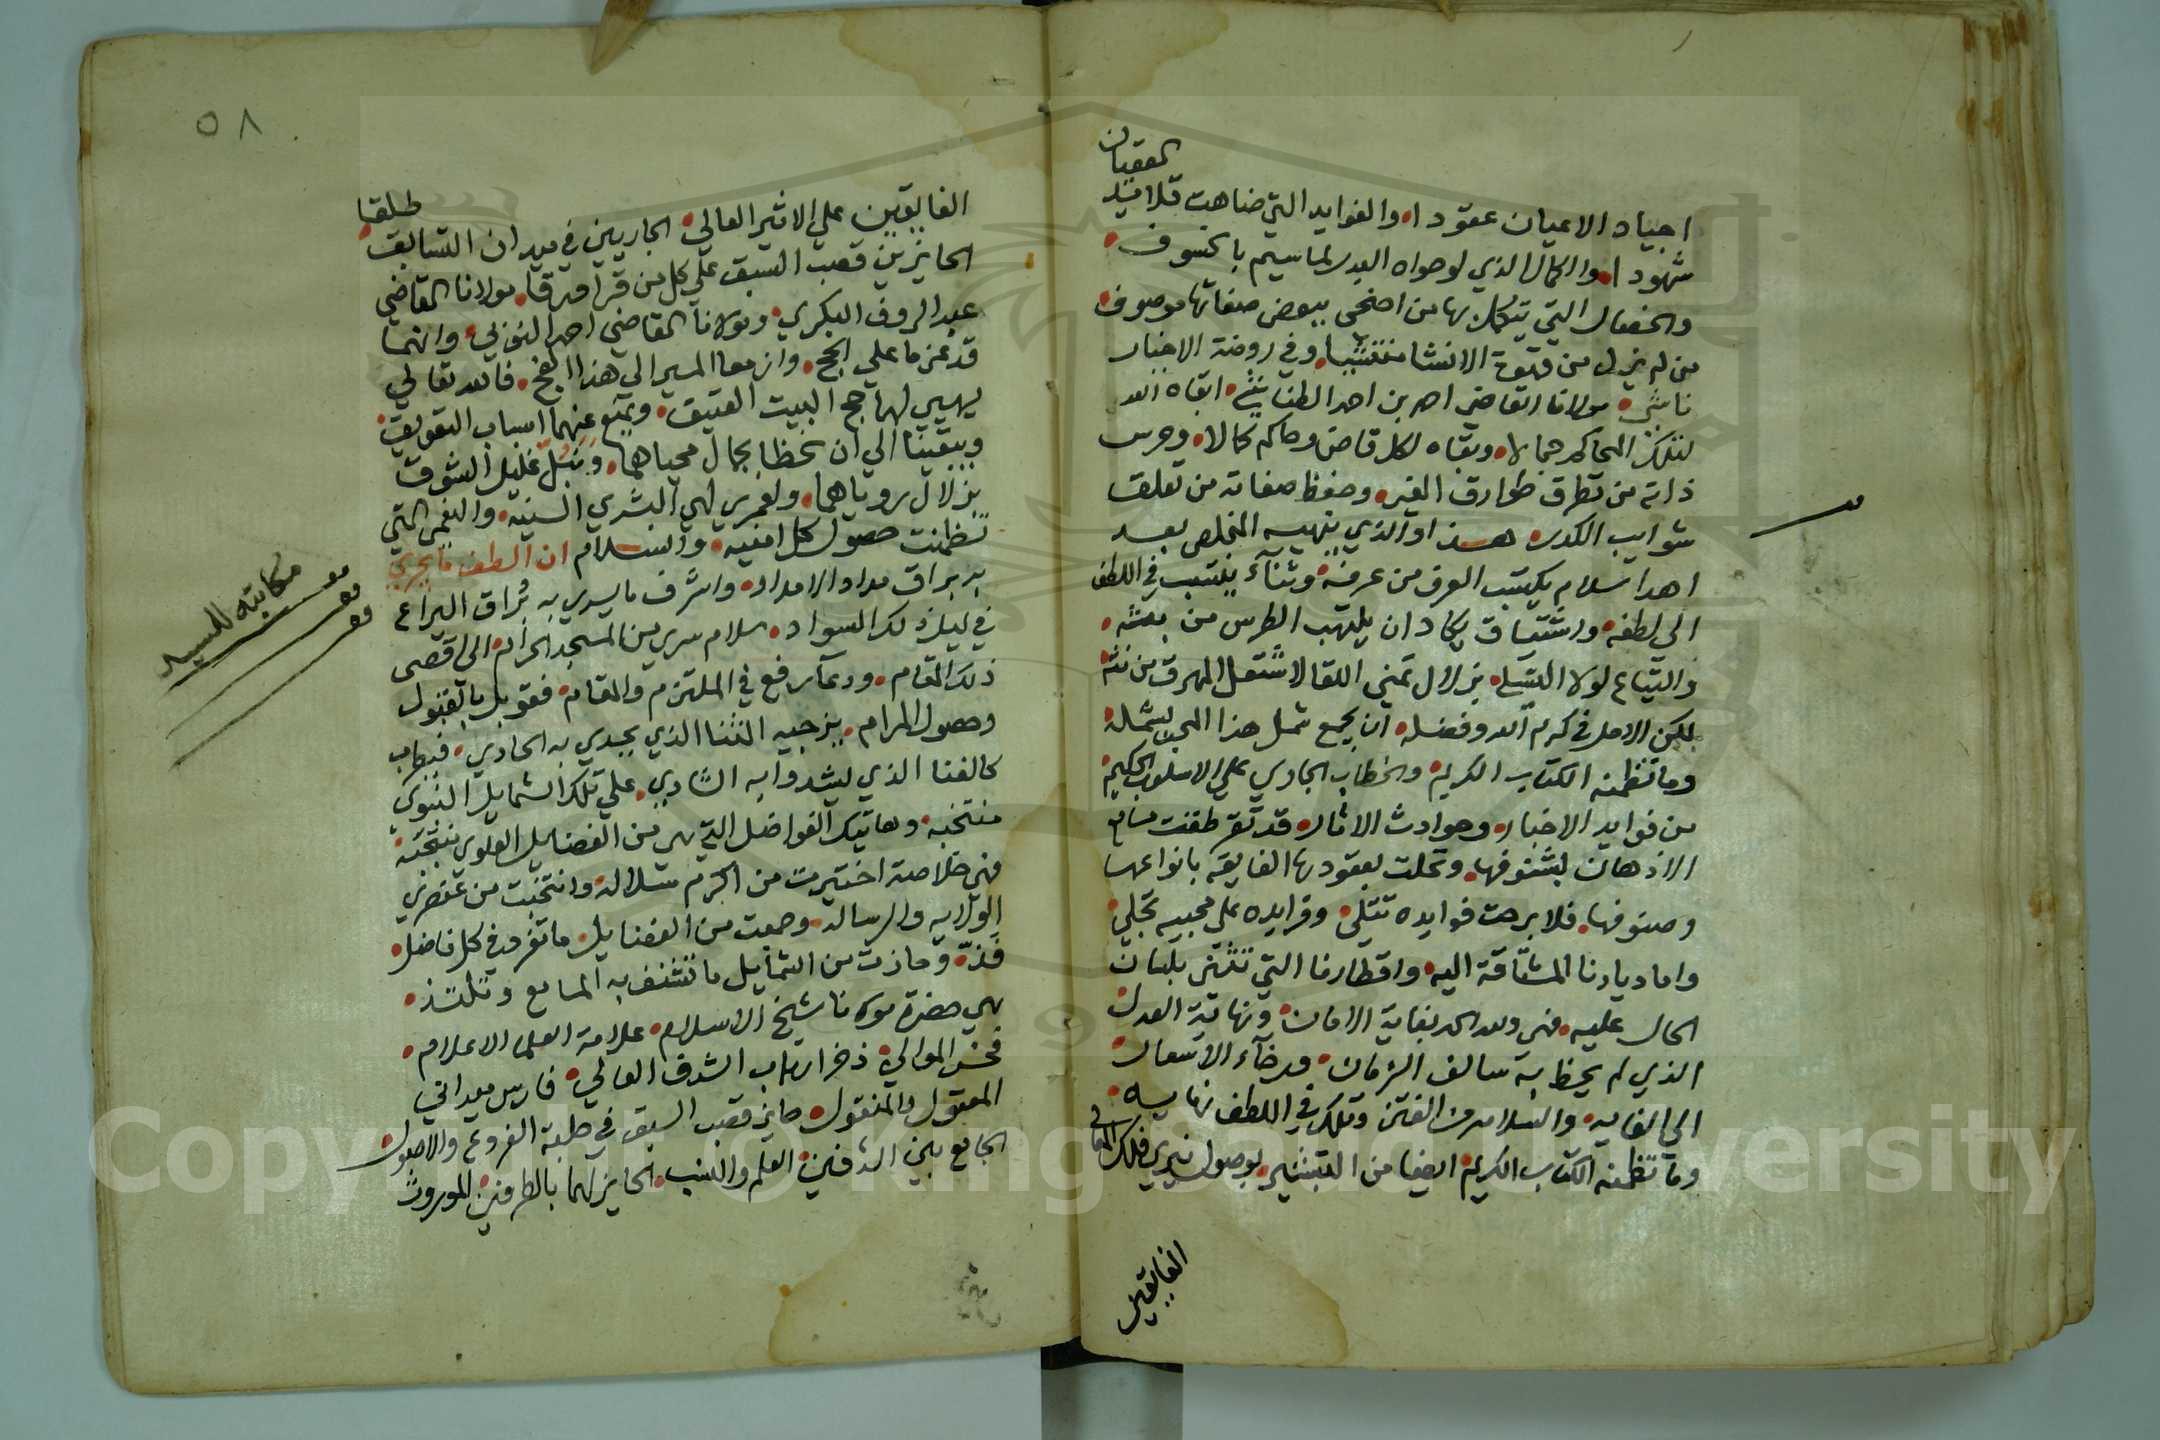 اجياد الاعيان عقودا والفوايد التي ضاهت قلايد العقيان
شهودا والكمال الذي لو حواه البدر لما سيم بالخسوف
والخصال التي يتكمل بها من اضحى ببعض صفاتها موصوف
من لم يزل من قهوة الانشا منتشيا وفي روضة الاخبار
ناشي مولانا القاضي احمد بن احمد ابقاه الله
لتلك المحاكم جمالا وبقاه لكل قاض وحاكم كمالا وحرس
ذاته من تطرق طوارق الغير وحفظ صفاته من تعلق
شوايب الكدر هذا والذي ينهيه المخلص بعد
اهدا سلام يكتسب العرف من عرفه وثناء ينتسب في اللطف
الى لطفه واشتياق يكاد ان يلتهب الطرس من بعثه
والتياع لولا التسلي بزلال تمني اللقا لاشتعل المهرق من نثه
لكن الامل في كرم الله وفضله ان يجمع شمل هذا المحب بشمله
وما تضمنه الكتاب الكريم والخطاب الجاري على الاسلوب الحكيم
من فوايد الاخبار وحوادث الاثار قد تقرطقت مسامع
الاذهان بشنوفها وتحلت بعقودها الفايقة بانواعها
وصنوفها فلا برحت فوايده تتلى وفرايده على محبيه تجلى
واما ديارنا المشتاقة اليه واقطارنا التي تثني بلسان
الحال عليه فهي ولله الحمد بغاية الامان ونهاية العدل
الذي لم يحظ به سالف الزمان ورخاء الاسعار
الى الغايه والسلامة من الفتن وتلك في اللطف نهايه
وما تضمنه الكتاب الكريم ايضا من التبشير بوصول نيري فلك المعالي
الفايقين
٥٨
الفايقين على الاثير العالي الجاريين في ميدان التسابق طلقا
الحايزين قصب السبق على كل من قرا ورقا مولانا القاضي
عبد الروف البكري ومولانا القاضي احمد وانهما
قد عزما على الحج وازمعا المسير الى هذا الفج فالله تعالى
يهيي لهما حج البيت العتيق ويمنع عنهما اسباب التعويق
ويبقينا الى ان نحظا بجمال محياهما ونبل غليل الشوق
بزلال روياهما ولعمري لهي البشرى السنيه والنعمى التي
تضمنت حصول كل امنيه والسلام ان الطف ما يجري
به براق مداد الامداد واشرف ما يسري به براق اليراع
في ليل ذلك السواد سلام سرى من المسجد الحرام الى اقصى
ذلك المقام ودعآ رفع في الملتزم والمقام فقوبل بالقبول
وحصول المرام يزجيه الثنا الذي يحدي به الحادي فيطرب
كالغنا الذي يشدوا به الشادي على تلك الشمايل النبوي
منتخبه وهاتيك الفواضل التي هي من الفضايل العلوي منتجبه
فهي خلاصة اختيرت من اكرم سلاله وانتخبت من عنصري
الولايه والرساله وجمعت من الفضايل ما تفرد في كل فاضل
فذه وحازت من الشمايل ما تتشنف به المسامع وتلتذ
هي حضرة مولانا شيخ الاسلام علامة العلما الاعلام
فخر الموالي ذخر ارباب الشرف العالي فارس ميداني
المعقول والمنقول حايز قصب السبق في حلبة الفروع والاصول
الجامع بين الشرفين العلم والنسب الحايز لهما بالطرفين الموروث
مكاتبة للسيد